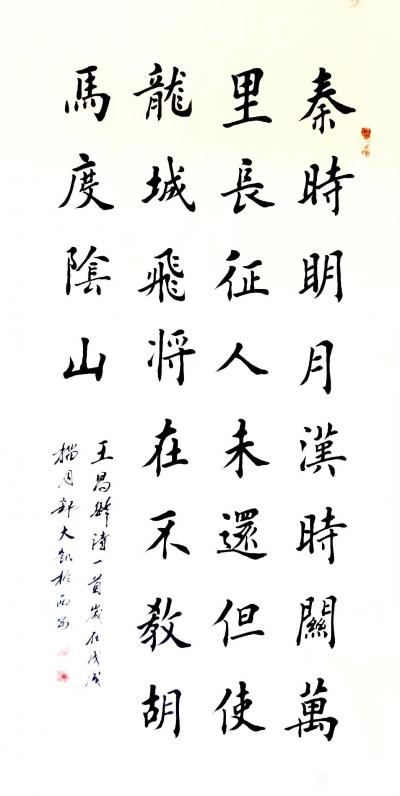 秦時明月漢時關萬
里長征人未還但使
龍城飛將在不教胡
馬度陰山
王昌齡詩一首歲在戊戌
月郭大凱於西安